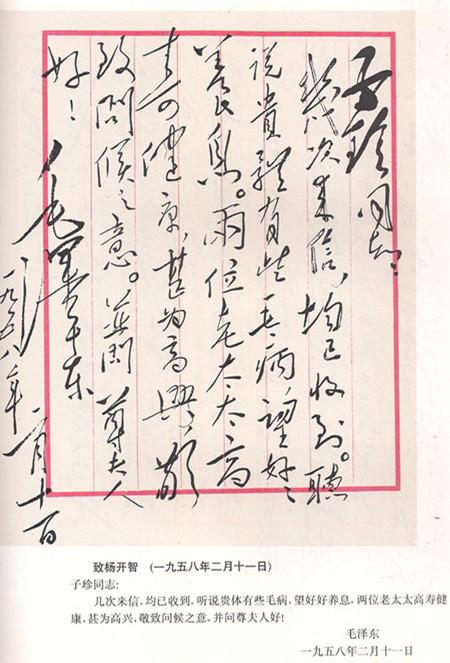 子珍同志：
幾次来信，均已收到。聽
说貴體有些毛病，望好好
養息。兩位老太太高
寿可健康，甚为高興，敬
致问候之意。並问尊夫人
好！
毛泽东
一九五八年二月十一日
致杨开智 (一九五八年二月十一日)
子珍同志：
几次来信，均已收到。听说贵体有些毛病，望好好养息，两位老太太高寿健
康，甚为高兴，敬致问候之意，并问尊夫人好！
毛泽东
一九五八年二月十一日